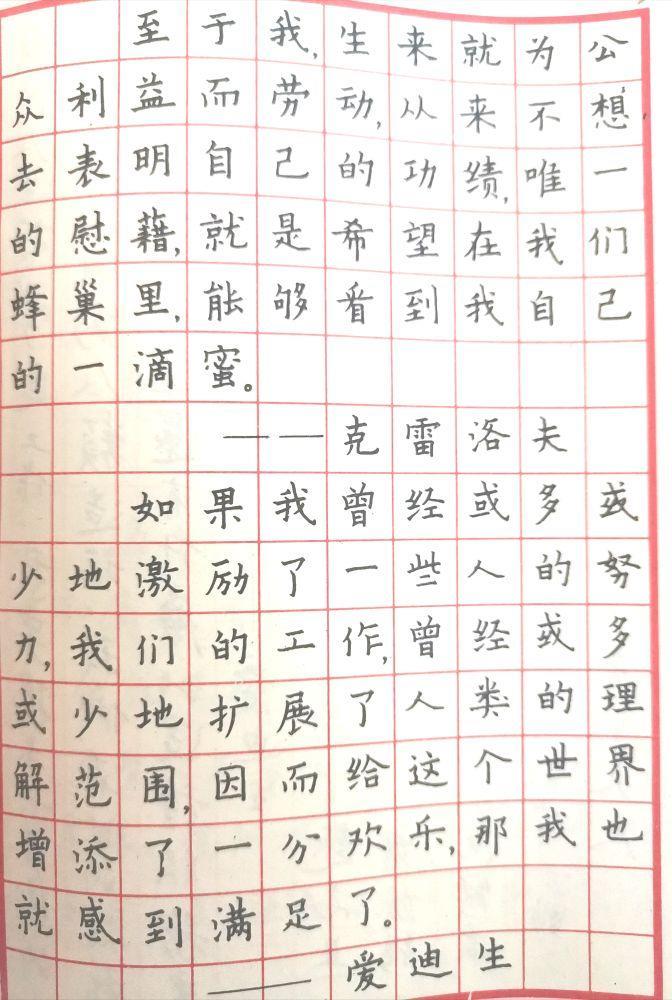 至于我,生来就为公
众利益而劳动,从来不想,
去表明自己的功绩,唯一
的慰藉,就是希望在我们
蜂巢里,能够看到我自己
的一滴蜜。
——克雷洛夫
如果我曾经或多或
少地激励了一些人的努
力,我们的工作,曾经或多
或少地扩展了人类的理
解范围,因而给这个世界
增添了一分欢乐,那我也
就感到满足了。
——爱迪生